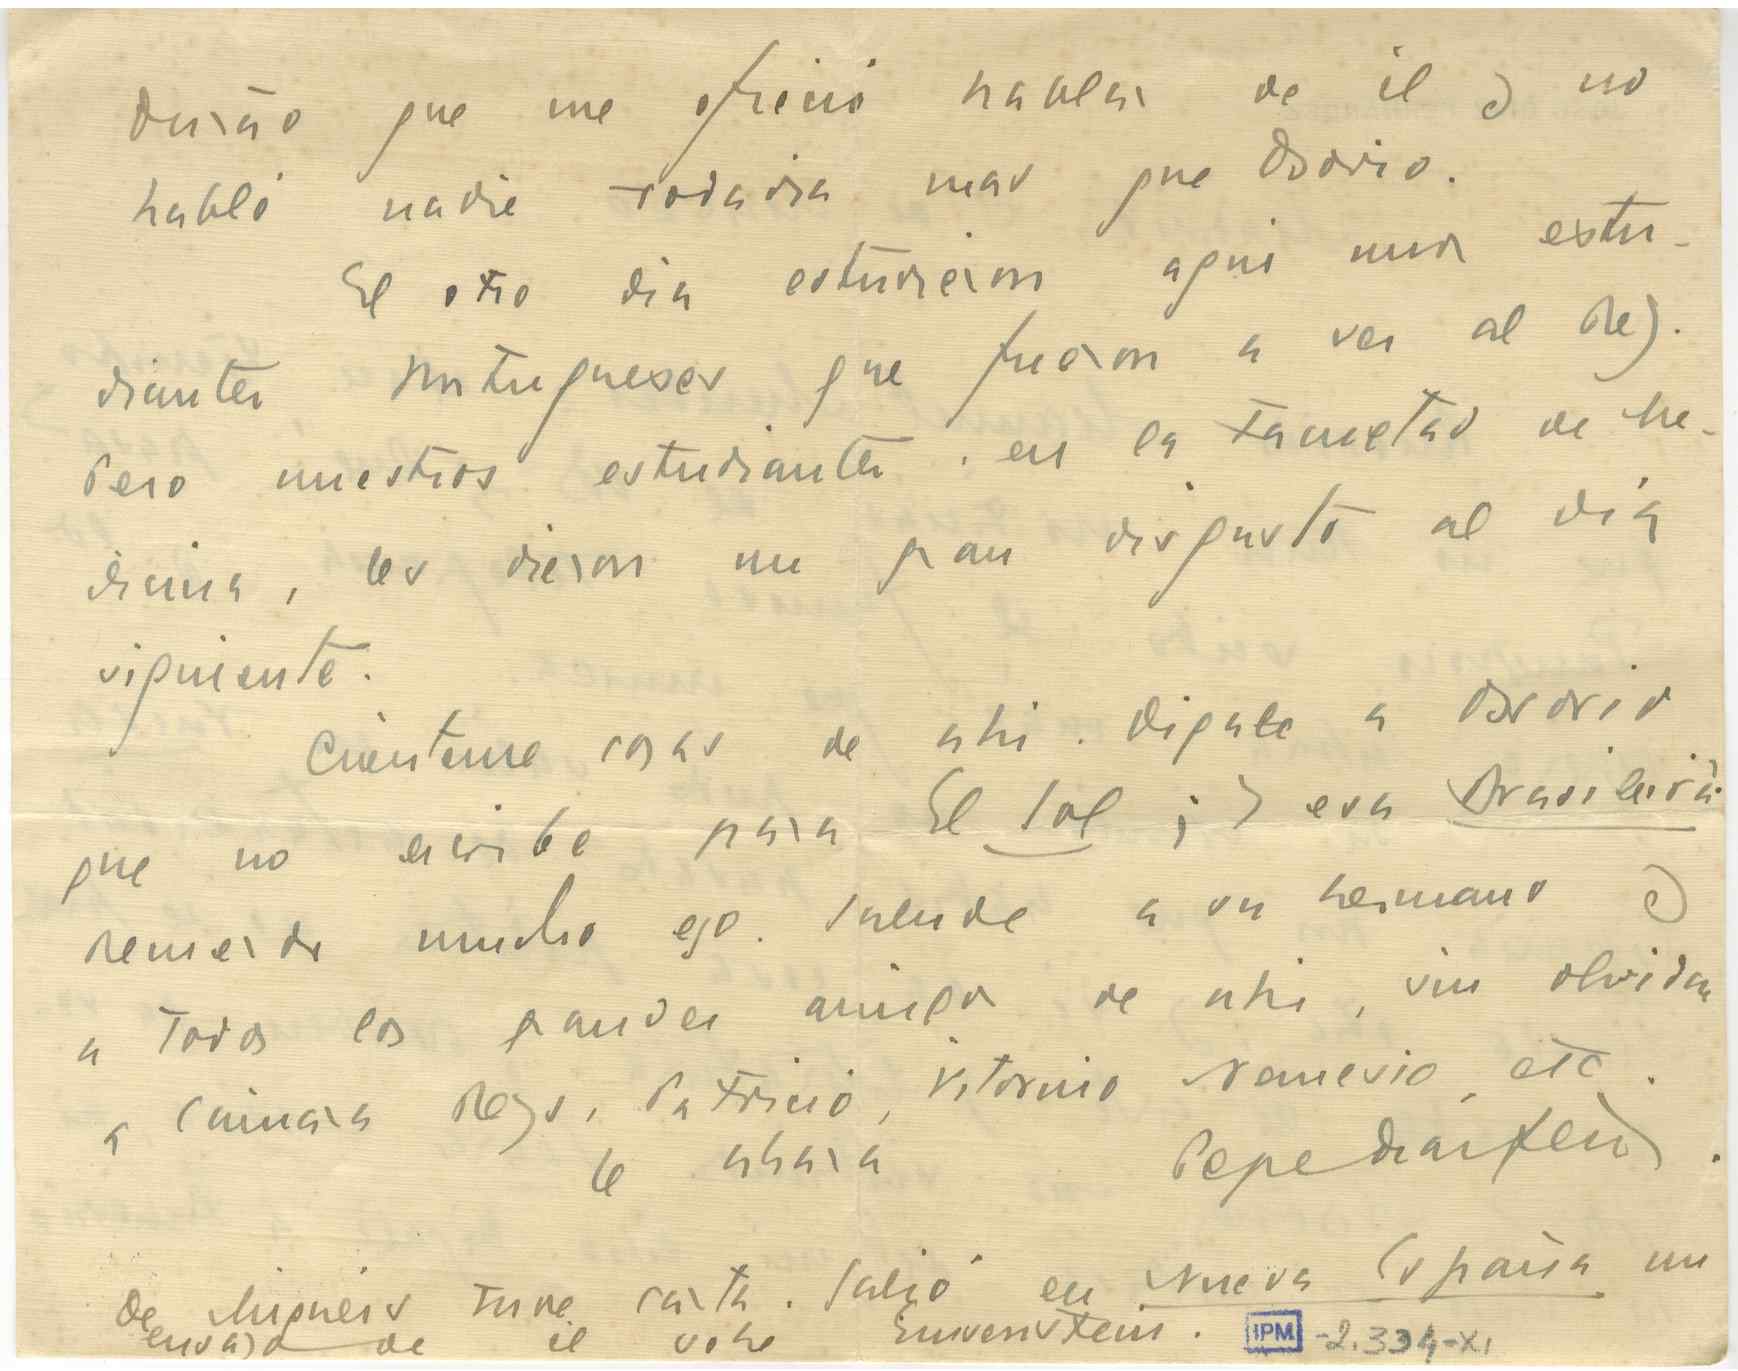 Durão que me ofreció hablar de él y no
habló nadie todavia mas que Osorio.
El otro dia estuvieron aqui unos estu-
diantes portugueses que fueron a ver al Rey.
Pero nuestros estudiantes, en la Facultad de Me-
dicina, les dieron un gran disgusto al día
siguiente.
Cuénteme cosas de ahi. Digale a Osorio
que no escribe para El Sol; y esa Brasileira
Remerdo mucho eso. Salude a su hermano y
a todos los grandes amigos de ahi, sin olvidar
a Camara Reys, Patricio, Vitorino Nemesio, etc.
le abraza Pepe
De Migueis tuve carta. Salió en Nueva España un
ensayo de él sobre Eisenstein. IPM -2.334-XI